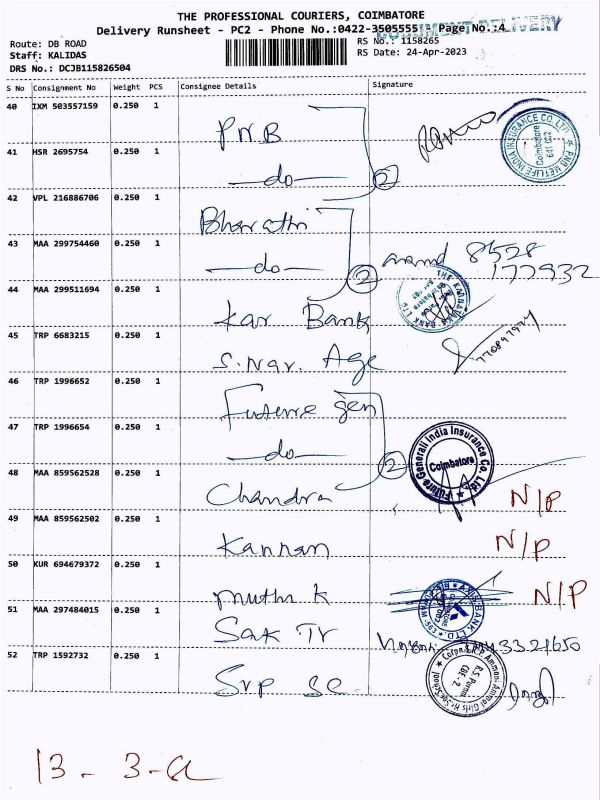 THE PROFESSIONAL COURIERS, COIMBATORE
Delivery Runsheet - PC2 - Phone No.:0422-3505555 Page No.:4
Route: DB ROAD
RS No.: 1158265
Staff: KALIDAS
RS Date: 24-Apr-2023
DRS No.: DCJB115826504
S No Consignment No Weight PCS Consignee Details Signature
40 IXM 503557159 0.250 1
PNB
41 HSR 2695754 0.250 1
—do— 2
PNB METLIFE INDIA INSURANCE CO. LTD. Coimbatore
42 VPL 216886706 0.250 1
Bharathi
43 MAA 299754460 0.250 1
—do— 2
anand 8528
177932
44 MAA 299511694 0.250 1
Kar Bank
THE KARNATAKA BANK LTD
45 TRP 6683215 0.250 1
S. Nar. Age
46 TRP 1996652 0.250 1
Future gen
47 TRP 1996654 0.250 1
—do— 2
Future Generali India Insurance Co. Ltd. Coimbatore
48 MAA 859562528 0.250 1
Chandra N/P
49 MAA 859562502 0.250 1
Kannan N/P
50 KUR 694679372 0.250 1
Muthu K N/P
AXIS BANK LTD.
51 MAA 297484015 0.250 1
Sak Tr
52 TRP 1592732 0.250 1
Srp Sc
R.S. Puram
CBE-2
13 - 3-a